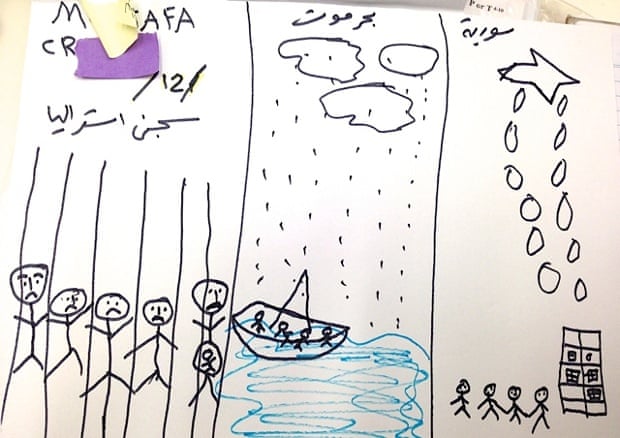 M AFA
CR
/12/
سجن استراليا
بحر موت
سورية